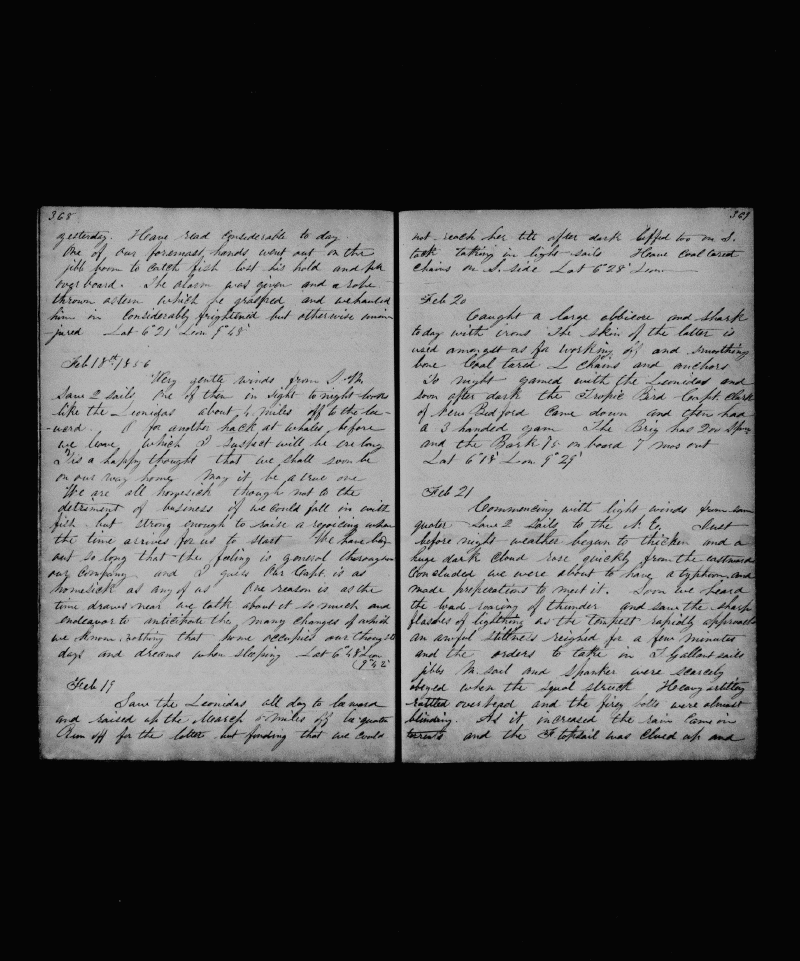 368
yesterday. Have read considerable to day
One of our foremast hands went out on the
jibb boom to catch fish lost his hold and fell
overboard. The alarm was given and a rope
thrown astern which he grasped and we hauled
him in Considerably frightened but otherwise unin-
jured Lat 6°21' Lon 9°48'
Feb 18th 1856
Very gentle winds from S.
Saw 2 sails One of them in sight to night looks
like the Leonidas about 4 miles off to the lee-
ward. O for another hack at whales, before
we leave, which I suspect will be ere long
Tis a happy thought that we shall soon be
on our way home, May it be a true one
We are all homesick though not to the
detriment of business if we could fall in with
fish but strong enough to raise a rejoicing when
the time arrives for us to start We have been
out so long that the feeling is general throughout
our Company and I guess Our Capt. is as
homesick as any of us One reason is as the
time draws near we talk about it so much and
endeavor to anticipate the many changes of which
we know nothing that home occupies our thoughts
days and dreams when sleeping Lat 6°48' Lon
9°42'
Feb 19
Saw the Leonidas all day to leeward
and raised up the March 5 miles off lee quarter
Run off for the latter but finding that we could
369
not reach her till after dark luffed too on S.
tack taking in light sails Have Coal tared
chains on S. side Lat 6°28' Lon
Feb 20
Caught a large albicore and shark
to day with irons The skin of the latter is
used amongst us for working off and smoothing
bone Coal tared L chains and anchors
To night gamed with the Leonidas and
soon after dark the Tropic Bird Capt. Clark
of New Bedford Came down and then had
a 3 handed gam The Brig has 200 Sperm
and the Bark 75 on board 7 mos out
Lat 6°18' Lon 9°29'
Feb 21
Commencing with light winds from same
quater Saw 2 Sails to the N. E. Just
before night weather began to thicken and a
huge dark Cloud rose quickly from the eastward
Concluded we were about to have a typhoon and
made preperations to meet it. Soon we heard
the loud roaring of thunder and saw the sharp
flashes of lightning as the tempest rapidly approached
an awful stillness reigned for a few minutes
and the orders to take in T Gallant sails
jibbs M. sail and Spanker were scarcely
obeyed when the squal struck Heavy artillery
rattled overhead and the firey bolts were almost
blinding. As it increased the rain Came in
torrents and the F topsail was Clued up and